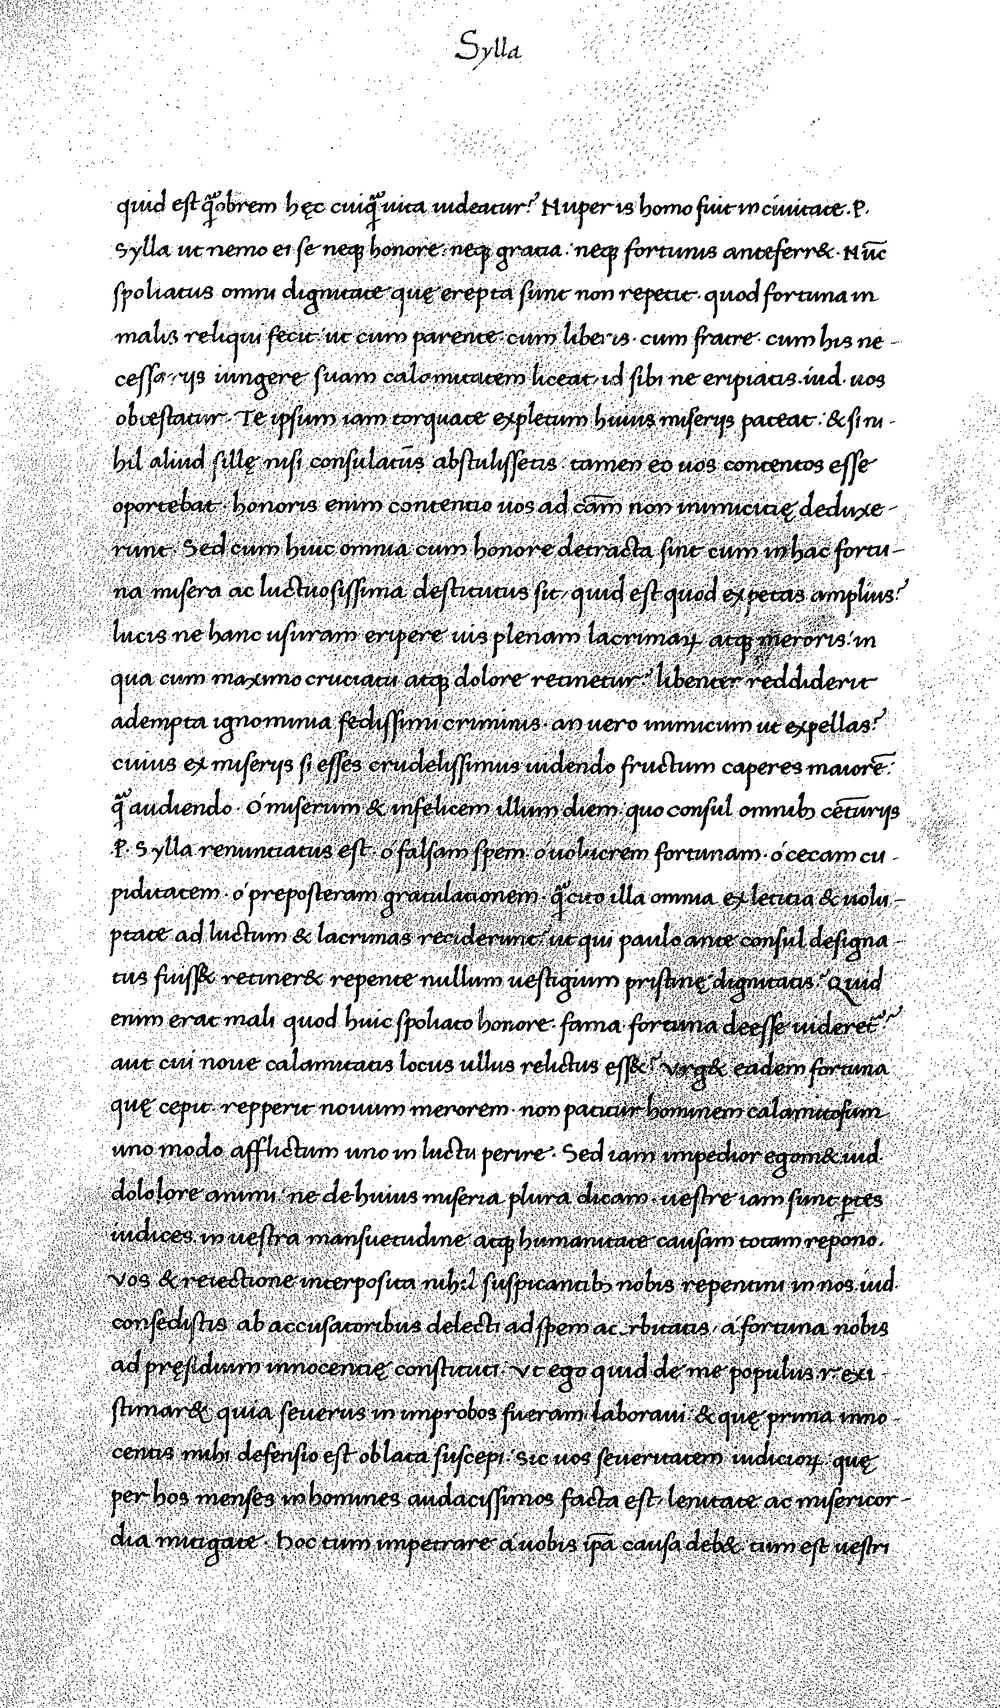 Sylla
quid est q̃obrem hęc cuiq̃ uita uideatur? Nuper is homo fuit in ciuitate .P.
Sylla ut nemo ei se neq; honore: neq; gratia: neq; fortunis anteferr&. Nūc
spoliatus omni dignitate quę erepta sunt non repetit. quod fortuna in
malis reliqui fecit: ut cum parente. cum liberis. cum fratre. cum his ne-
cessarijs iungere suam calamitatem liceat, id sibi ne eripiatis. iud. uos
obtestatur. Te ipsum iam torquate expletum huius miserijs pateat: & si ni-
hil aliud sillę nisi consulatūs abstulissetis: tamen eo uos contentos esse
oportebat. honoris enim contentio uos ad cām non inimicicię deduxe-
runt. Sed cum huic omnia cum honore detracta sint cum in hac fortu-
na misera ac luctuosissima destitutus sit, quid est quod expetas amplius?
lucis ne hanc usuram eripere uis plenam lacrimaꝝ atq; meroris: in
qua cum maximo cruciatu atq; dolore retinetur? libenter reddiderit
adempta ignominia fedissimi criminis. an uero inimicum ut expellas?
cuius ex miserijs si esses crudelissimus uidendo fructum caperes maiorē:
q̃ audiendo. O miserum & infelicem illum diem. quo consul omnib; cēturijs
.P. Sylla renunciatus est. o falsam spem. o uolucrem fortunam. o cecam cu-
piditatem. o preposteram gratulationem. q̃ cito illa omnia ex letitia & uolu-
ptate ad luctum & lacrimas reciderunt: ut qui paulo ante consul designa-
tus fuiss& retiner& repente nullum uestigium pristinę dignitatis? Quid
enim erat mali quod huic spoliato honore. fama. fortuna deesse uideret̃?
aut cui noue calamitatis locus ullus relictus ess&? Vrg& eadem fortuna
quę cepit. repperit nouum merorem. non patitur hominem calamitosum
uno modo afflictum uno in luctu perire. Sed iam impedior egom& iud.
dololore animi: ne de huius miseria plura dicam. uestre iam sunt ꝑtes
iudices. in uestra mansuetudine atq; humanitate causam totam repono.
Vos & reiectione interposita nihil suspicantib; nobis repentini in nos. iud.
consedistis ab accusatoribus delecti ad spem acerbitatis, a fortuna nobis
ad pręsidium innocentię constituti. Vt ego quid de me populus .r. exi-
stimar& quia seuerus in improbos fueram laboraui: & quę prima inno-
centis mihi defensio est oblata suscepi: Sic uos seueritatem iudicioꝝ. quę
per hos menses in homines audacissimos facta est, lenitate ac misericor-
dia mitigate. Hoc cum impetrare a uobis ip̄a causa deb&. tum est uestri